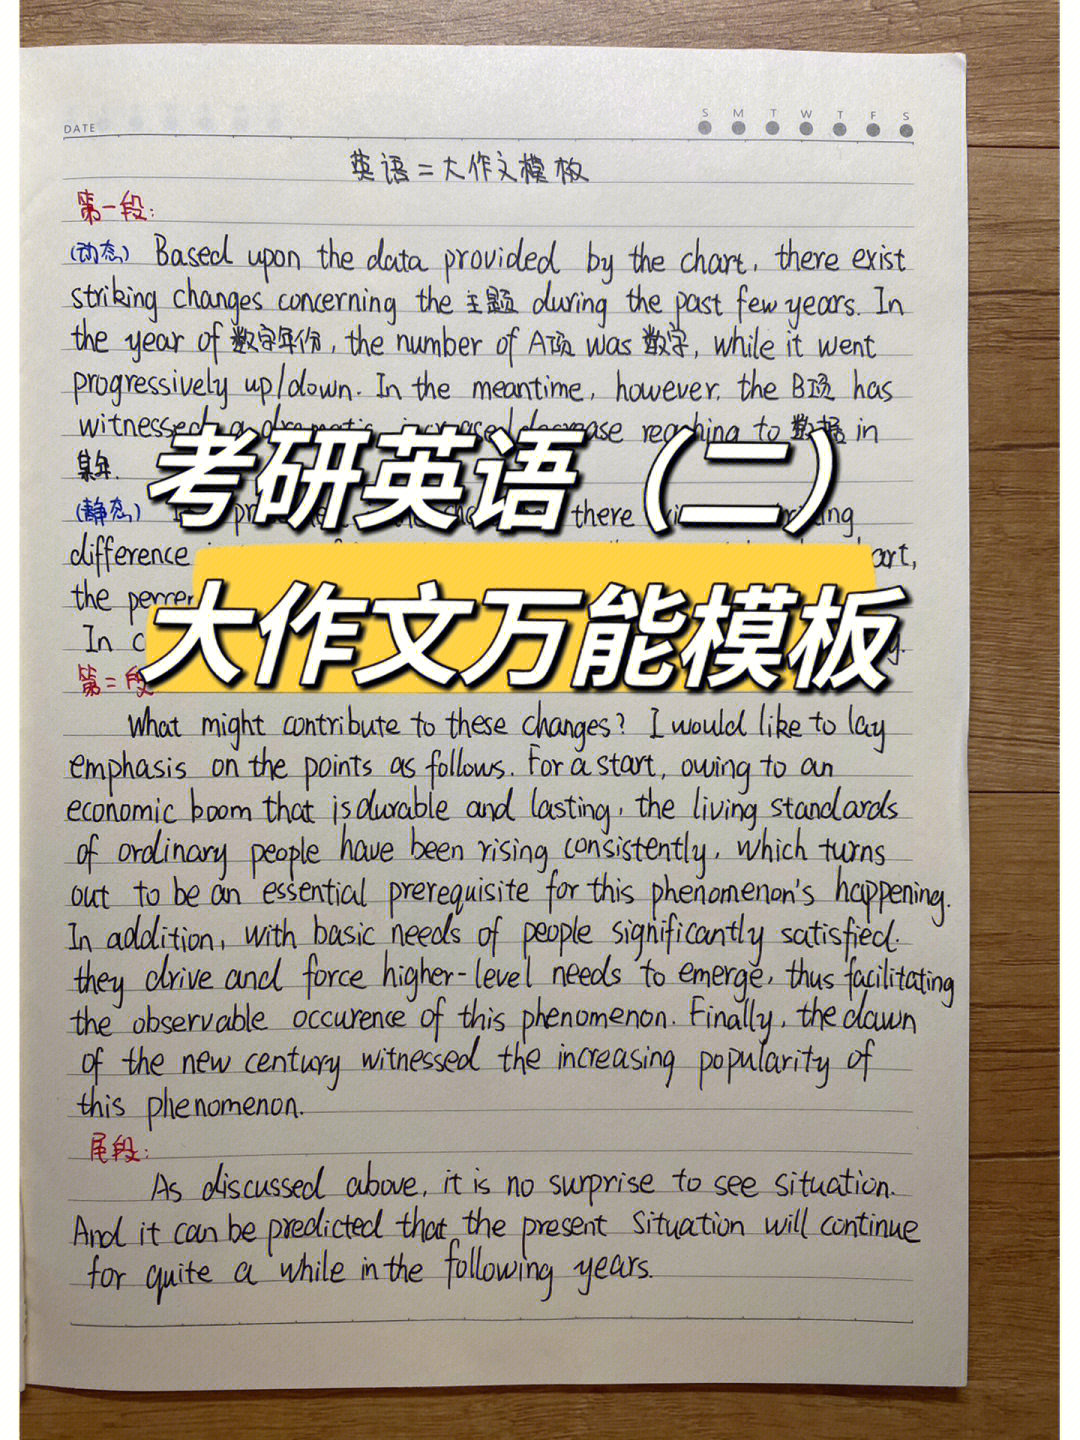 DATE
S M T W T F S
英语二大作文模板
第一段:
(动态) Based upon the data provided by the chart, there exist
striking changes concerning the 主题 during the past few years. In
the year of 数字年份, the number of A项 was 数字, while it went
progressively up/down. In the meantime, however, the B项 has
witnessed a dramatic increase/decrease reaching to 数据 in
某年.
考研英语（二）
(静态) there
difference
the
In
大作文万能模板
第二段
What might contribute to these changes? I would like to lay
emphasis on the points as follows. For a start, owing to an
economic boom that is durable and lasting, the living standards
of ordinary people have been rising consistently, which turns
out to be an essential prerequisite for this phenomenon's happening.
In addition, with basic needs of people significantly satisfied.
they drive and force higher-level needs to emerge, thus facilitating
the observable occurence of this phenomenon. Finally, the dawn
of the new century witnessed the increasing popularity of
this phenomenon.
尾段:
As discussed above, it is no surprise to see situation.
And it can be predicted that the present situation will continue
for quite a while in the following years.